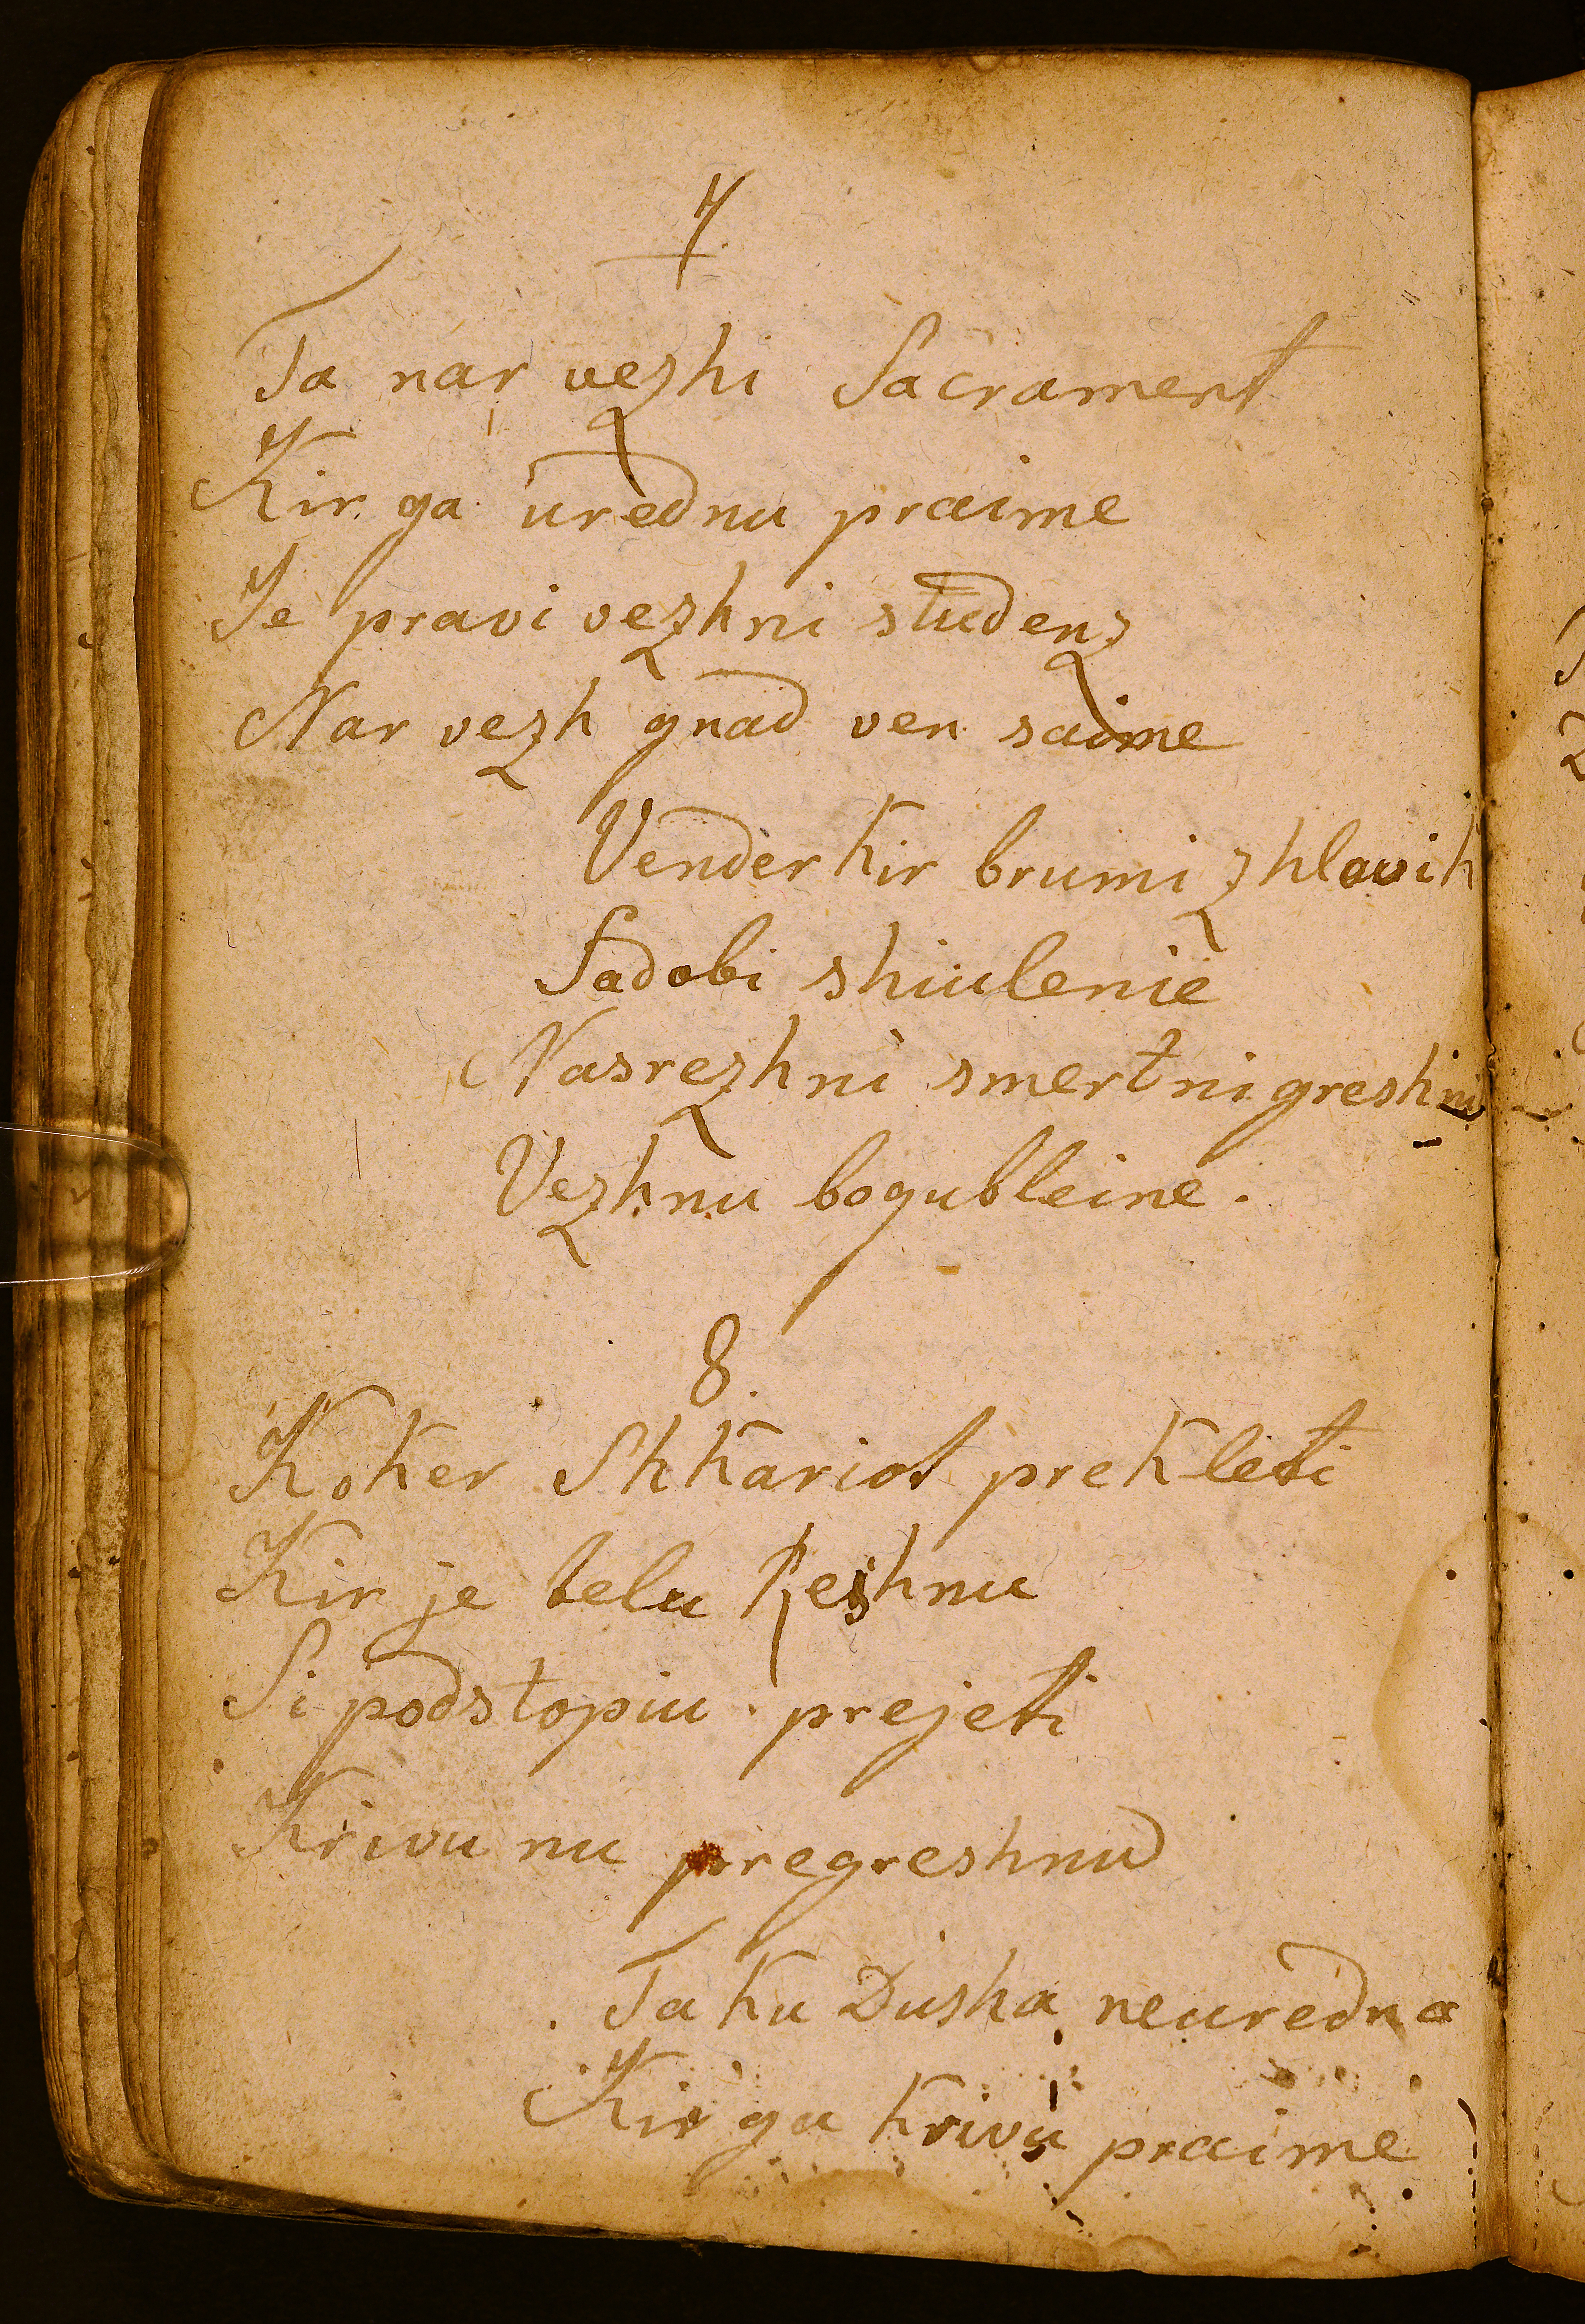 7.
Ta nar vezhi Sacrament
Kir ga urednu praime
Je pravi vezhni studenz
Nar vezh gnad ven saime
Vender kir brumi zhlovik
Sadobi shiulenie
Nasrezhni smertni greshni
Vezhnu bogubleine.
8.
Koker Shkariot prekleti
Kir je telu Reshnu
Si podstopiu prejeti
Krivu nu pregreshnu
Taku Dusha neuredna
Kir ga krivu praime